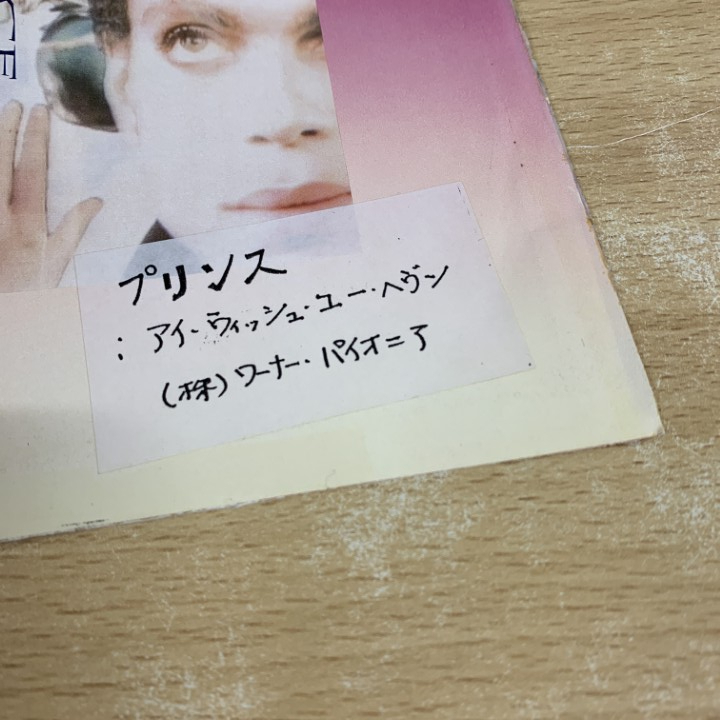 CE
プリンス
: アイ・ウィッシュ・ユー・ヘヴン
(株)ワーナー・パイオニア